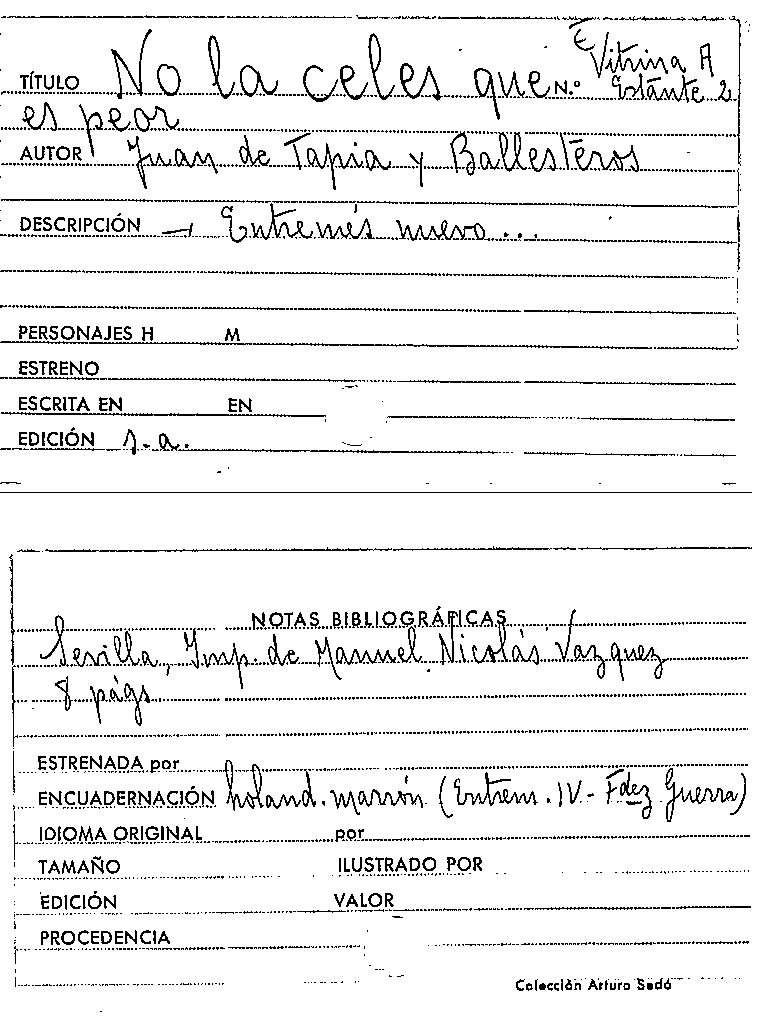 E
TÍTULO No la celes que N.º Vitrina A
Estante 2
es peor
AUTOR Juan de Tapia y Ballesteros
DESCRIPCIÓN → Entremés nuevo...
PERSONAJES H M
ESTRENO
ESCRITA EN EN
EDICIÓN s.a.
NOTAS BIBLIOGRÁFICAS
Sevilla, Imp. de Manuel Nicolás Vazquez
8 págs
ESTRENADA por
ENCUADERNACIÓN holand. marrón (Entrem. IV - Fdez Guerra)
IDIOMA ORIGINAL por
TAMAÑO ILUSTRADO POR
EDICIÓN VALOR
PROCEDENCIA
Colección Arturo Sedó